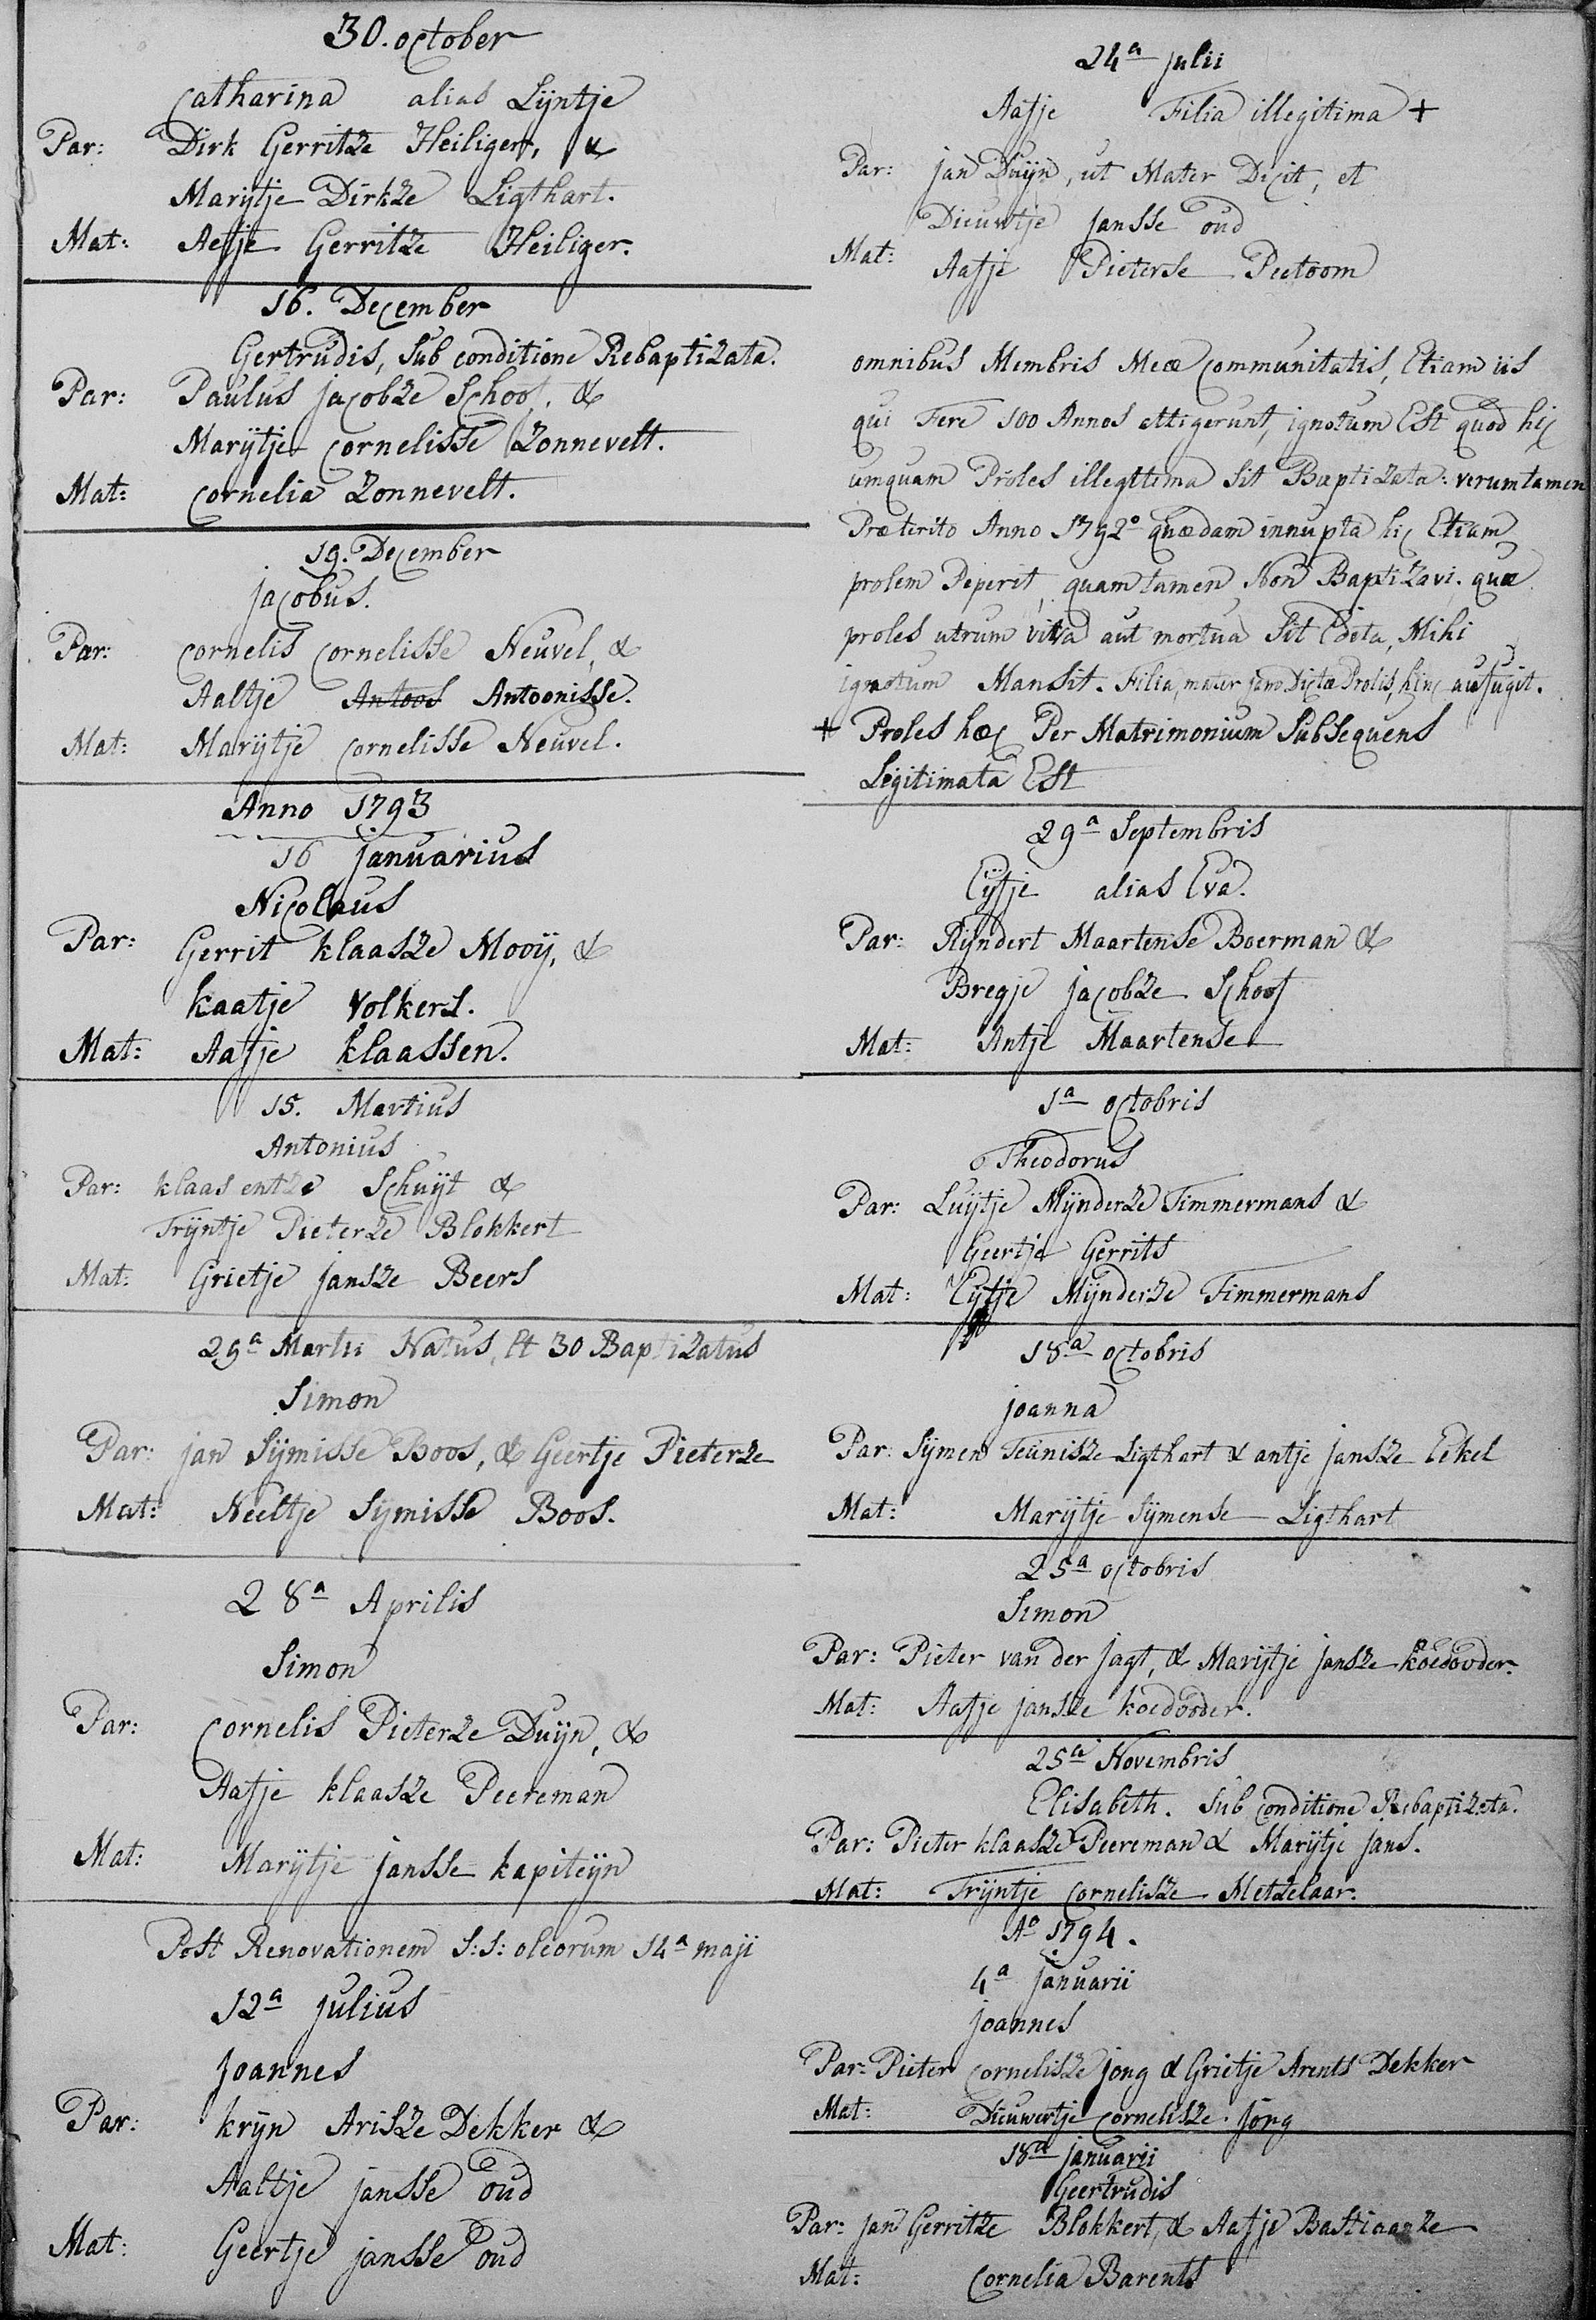 30. october
Catharina alias Lijntje
Par: Dirk Gerritze Heiliger, &
Marijtje Dirkze Ligthart.
Mat: Aefje Gerritze Heiliger.
16. December
Gertrudis, Sub conditione Rebaptizata.
Par: Paulus jacobze Schoof, &
Marijtje cornelisse Zonnevelt.
Mat: cornelia Zonnevelt.
19. December
jacobus.
Par: cornelis cornelisse Neuvel, &
Aaltje Antoos Antoonisse.
Mat: Marijtje cornelisse Neuvel.
Anno 1793
16 januarius
Nicolaus
Par: Gerrit klaasze Mooij, &
kaatje Volkers.
Mat: Aafje klaassen.
15. Martius
Antonius
Par: klaas entze Schuijt &
Trijntje Pieterze Blokkert
Mat: Grietje jansze Beers
29a Martii Natus, Et 30 Baptizatus
Simon
Par: jan Sijmisse Boos, & Geertje Pieterze
Mat: Neeltje Sijmisse Boos.
28a Aprilis
Simon
Par: Cornelis Pieterze Duijn, &
Aafje klaasze Peereman
Mat: Marijtje jansse kapiteijn
Post Renovationem S:S: oleorum 14a maji
12a julius
Joannes
Par: krijn Arisze Dekker &
Aaltje jansse oud
Mat: Geertje jansse oud
24a julii
Aafje Filia illegitima +
Par: jan Duijn, ut Mater Dicit, et
Dieuwtje jansse oud
Mat: Aafje Pieterse Peetoom
omnibus Membris Meæ Communitatis, Etiam iis
qui Fere 100 Annos attigerunt, ignotum Est quod hic
umquam Proles illegitima Sit Baptizata: verumtamen
Præterito Anno 1792o quædam innupta hic Etiam
prolem Peperit, quam tamen Non Baptizavi. quæ
proles utrum viva aut mortua Sit Edita, Mihi
ignotum Mansit. Filia, mater jam Dictæ Prolis, hinc aufugit.
+ Proles hæc Per Matrimonium Subsequens
Legitimata Est
29a Septembris
Eijfje alias Eva.
Par: Rijndert Maartense Boerman &
Bregje jacobze Schoof
Mat: Antje Maartense
1a octobris
Theodorus
Par: Luijtje Mijnderze Timmermans &
Geertje Gerrits
Mat: Eijtje Mijnderze Timmermans
18a octobris
joanna
Par: Sijmen Teunisze Ligthart & antje jansze Eekel
Mat: Marijtje Sijmense Ligthart
25a octobris
Simon
Par: Pieter van der jagt, & Marijtje jansze koedooder.
Mat: Aafje jansze koedooder.
25a Novembris
Elisabeth. Sub conditione Rebaptizata.
Par: Pieter klaasze Peereman & Marijtje jans.
Mat: Trijntje Cornelisze Metzelaar.
Ao 1794.
4a januarii
joannes
Par: Pieter cornelisze jong & Grietje Arents Dekker
Mat: Dieuwertje cornelisze jong
18a januarii
Geertrudis
Par: jan Gerritze Blokkert, & Aafje Bastiaanze
Mat: Cornelia Barents